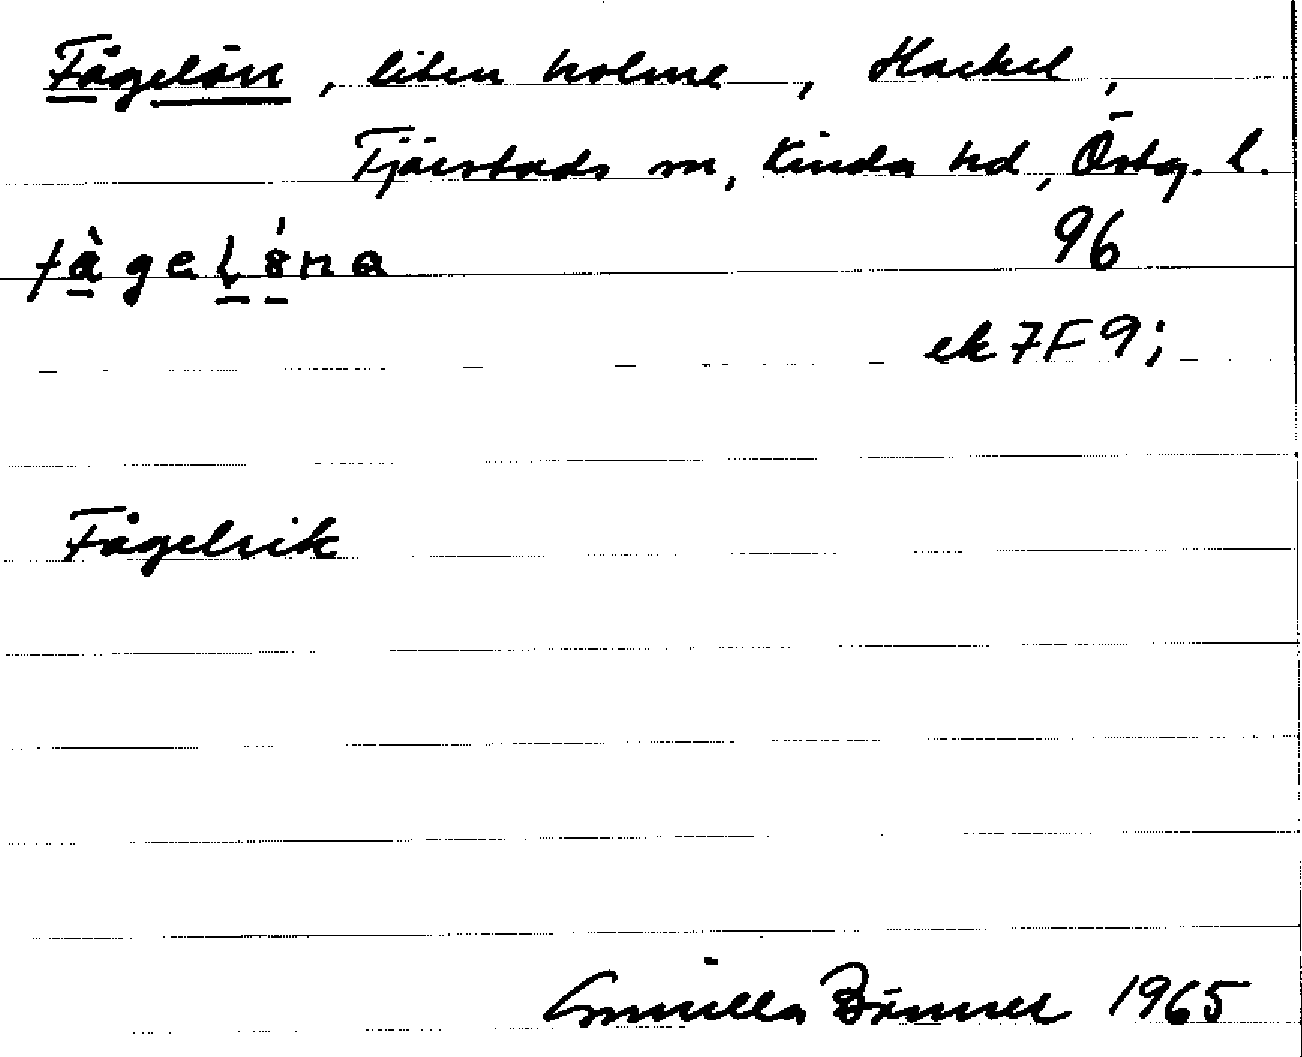 Fågelön, liten holme, Hackel,
Tjärstads sn, Kinda hd, Östg. l.
fàgelǿna 96
ek 7F9;
Fågelrik
Gunilla Bänner 1965